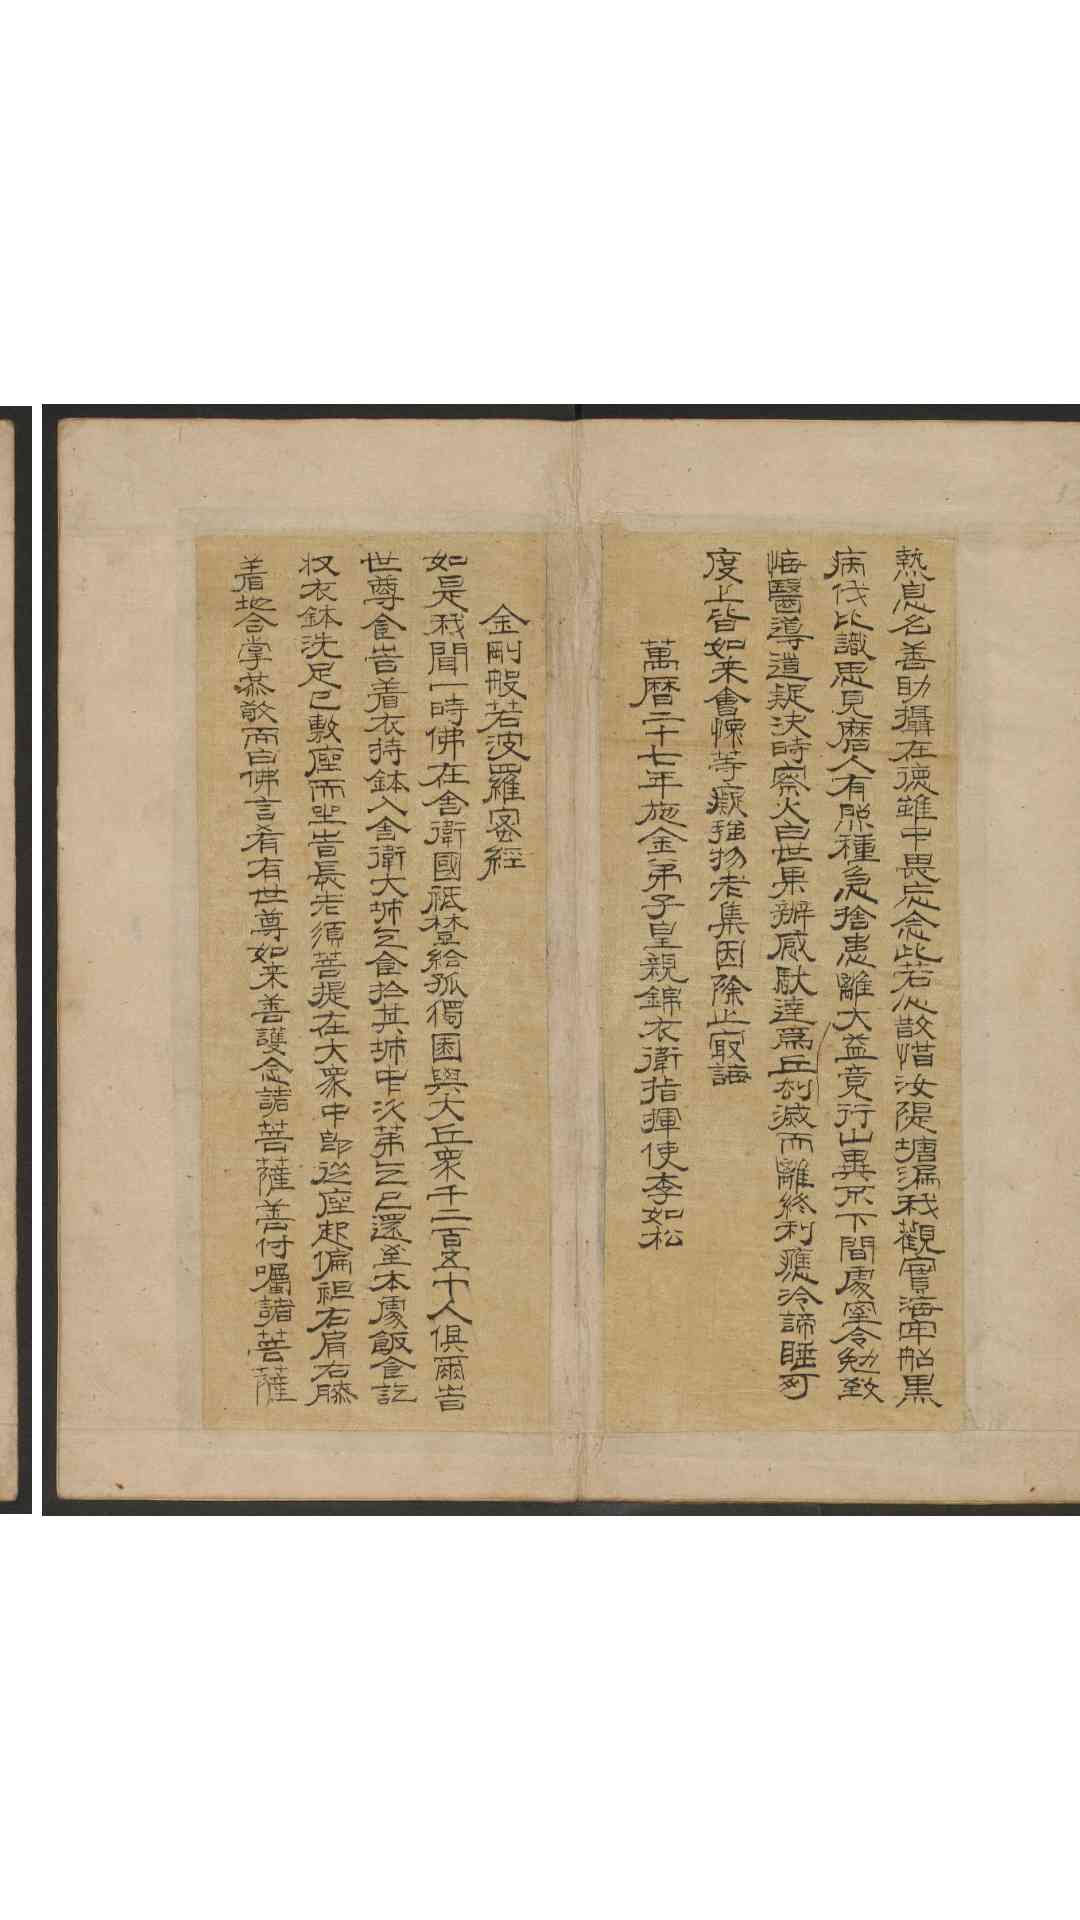 熱息名善助攝在德雖中畏忘念此若心散惜汝隄塘漏我觀實海牢船黑
病伐比識思見磨人有照種急捨患離大益竟行山異不下間處室令勉致
悔醫導道疑決時察火自世果辦感馱達為丘刹滅而離終利應冷諦睡可
度上皆如来會憐等癡稚物老集因除止寂誨
萬曆二十七年施金弟子皇親錦衣衛指揮使李如松
金剛般若波羅蜜經
如是我聞一時佛在舍衛國祗樹給孤獨園與大丘衆千二百五十人俱爾旹
世尊食旹着衣持鉢入舍衛大城乞食於其城中次苐乞已還至本處飯食訖
収衣鉢洗足已敷座而坐旹長老須菩提在大衆中即從座起偏袒右肩右膝
着地合掌恭敬而白佛言希有世尊如来善護念諸菩薩善付囑諸菩薩